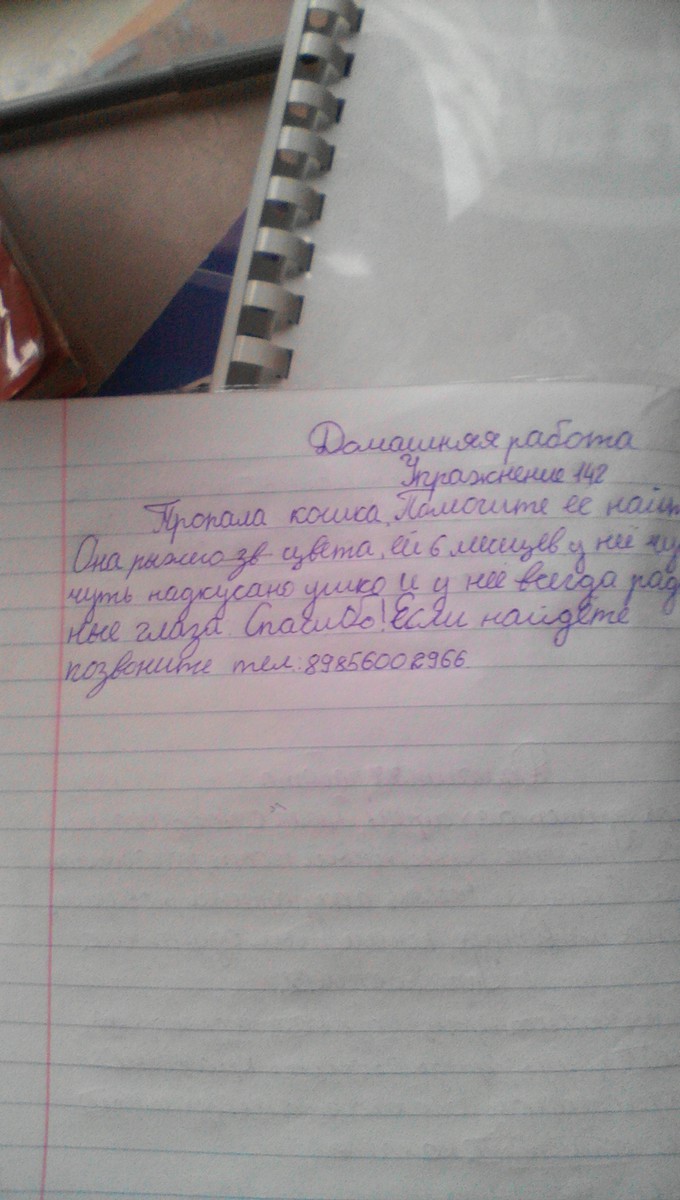 Домашняя работа
Упражнение 142
Пропала кошка. Помогите её найт
Она рыжего зв цвета, ей 6 месицев у неё чу
чуть надкусано ушко и у неё всегда рад
ные глаза. Спасибо! Если найдёте
позвоните тел.: 89856002966